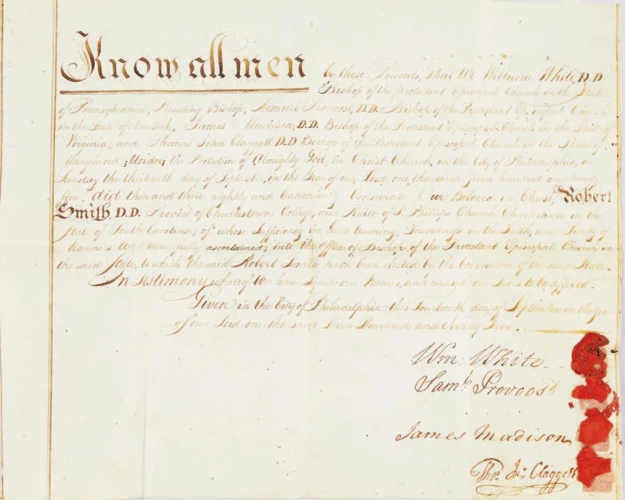 Know all men by these Presents, that We William White, D.D
Bishop of the Protestant Episcopal Church in the State
of Pennsylvania, Presiding Bishop, Samuel Provoost, D.D. Bishop of the Protestant Episcopal Church
in the State of New York, James Madison, D.D. Bishop of the Protestant Episcopal Church in the State of
Virginia; and Thomas John Claggett D.D Bishop of the Protestant Episcopal Church in the State of
Maryland; Under the Protection of Almighty God, in Christ Church, in the City of Philadelphia, on
Sunday the thirteenth day of September, in the Year of our Lord one thousand, seven hundred and ninety
five, did then and there rightly and Canonically Consecrate Our Beloved in Christ, Robert
Smith D.D. of Charlestown College, and Rector of St. Philips Church Charlestown in the
State of South Carolina, of whose Sufficiency in good Learning, Soundness in the Faith, and Purity of
Manners We were fully ascertained, into the office of Bishop of the Protestant Episcopal Church in
the said State, to which the said Robert Smith hath been elected by the Convention of the said State.
In Testimony whereof We have signed our Names, and caused our Seals to be affixed.
Given in the City of Philadelphia this fourteenth day of September in the year
of our Lord one thousand seven hundred and ninety five.
Wm: White.
Saml. Provoost
James Madison
Tho. Jn. Claggett